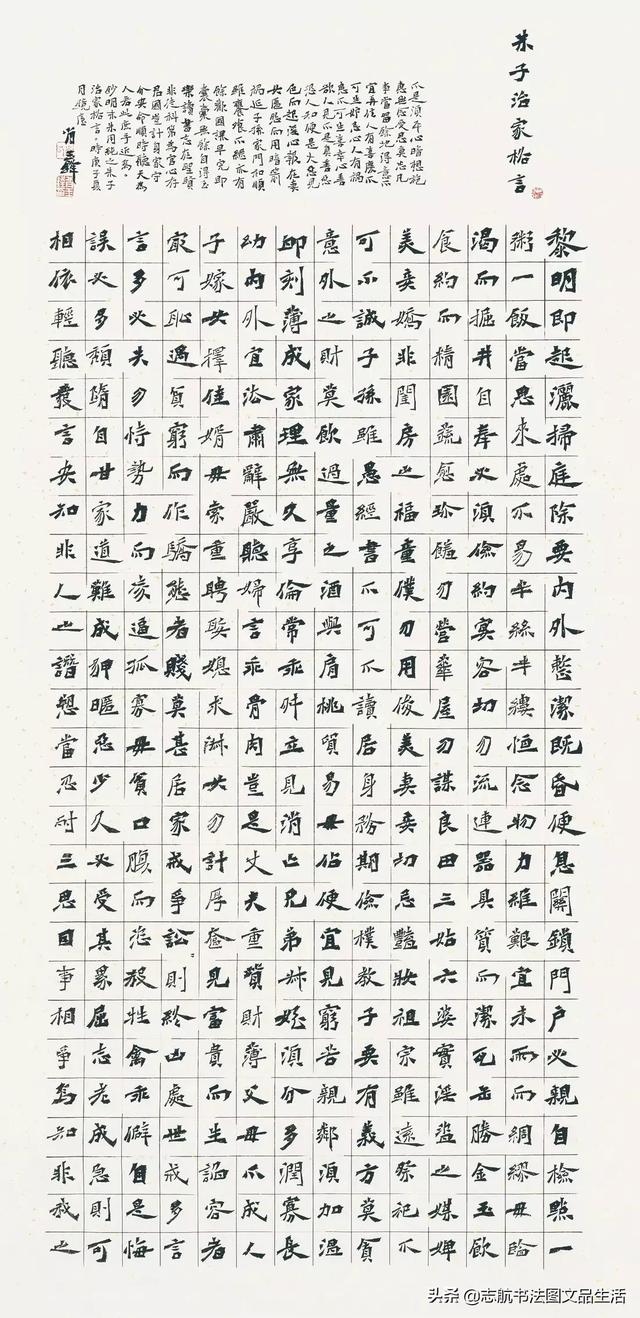 朱子治家格言
黎明即起灑掃庭除要内外整潔既昏便息關鎖門户必親自檢點一
粥一飯當思來處不易半絲半縷恒念物力維艱宜未雨而綢繆毋臨
渴而掘井自奉必須儉約宴客切勿流連器具質而潔瓦缶勝金玉飲
食約而精園蔬愈珍饈勿營華屋勿謀良田三姑六婆實淫盜之媒婢
美妾嬌非閨房之福童僕勿用俊美妻妾切忌豔妝祖宗雖遠祭祀不
可不誠子孫雖愚經書不可不讀居身務期儉樸教子要有義方莫貪
意外之財莫飲過量之酒與肩挑貿易毋佔便宜見窮苦親鄰須加温
卹刻薄成家理無久享倫常乖舛立見消亡兄弟叔姪須分多潤寡長
幼内外宜法肅辭嚴聽婦言乖骨肉豈是丈夫重貲財薄父母不成人
子嫁女擇佳婿毋索重聘娶媳求淑女勿計厚奩見富貴而生諂容者
最可恥遇貧窮而作驕態者賤莫甚居家戒爭訟〻則終凶處世戒多言
言多必失勿恃勢力而凌逼孤寡毋貪口腹而恣殺牲禽乖僻自是悔
誤必多頹隋自甘家道難成狎暱惡少久必受其累屈志老成急則可
相依輕聽發言安知非人之譖愬當忍耐三思因事相爭焉知非我之
不是須平心暗想施
惠無念受恩莫忘凡
事當留餘地得意不
宜再往人有喜慶不
可生妒忌心人有禍
患不可生喜幸心善
欲人見不是真善惡
恐人知便是大惡見
色而起淫心報在妻
女匿怨而用暗箭
禍延子孫家門和順
雖饔飧不繼亦有
餘歡國課早完即
囊橐無餘自得至
樂讀書志在聖賢
非徒科第爲官心存
君國豈計身家守
分安命順時聽天爲
人若此庶乎近焉
朱子
治家格言時庚子
頭条 @志航书法图文品生活